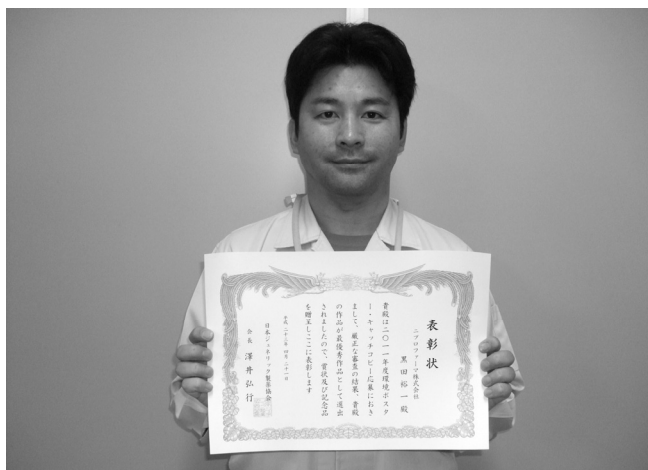 表彰状
ニプロファーマ株式会社
黒田裕一殿
貴殿は二〇一一年度環境ポスタ
ー・キャッチコピー応募におき
まして、厳正な審査の結果、貴殿
の作品が最優秀作品として選出
されましたので、賞状及び記念品
を贈呈しここに表彰します
平成二十三年四月二十一日
日本ジェネリック製薬協会
会長 澤井弘行